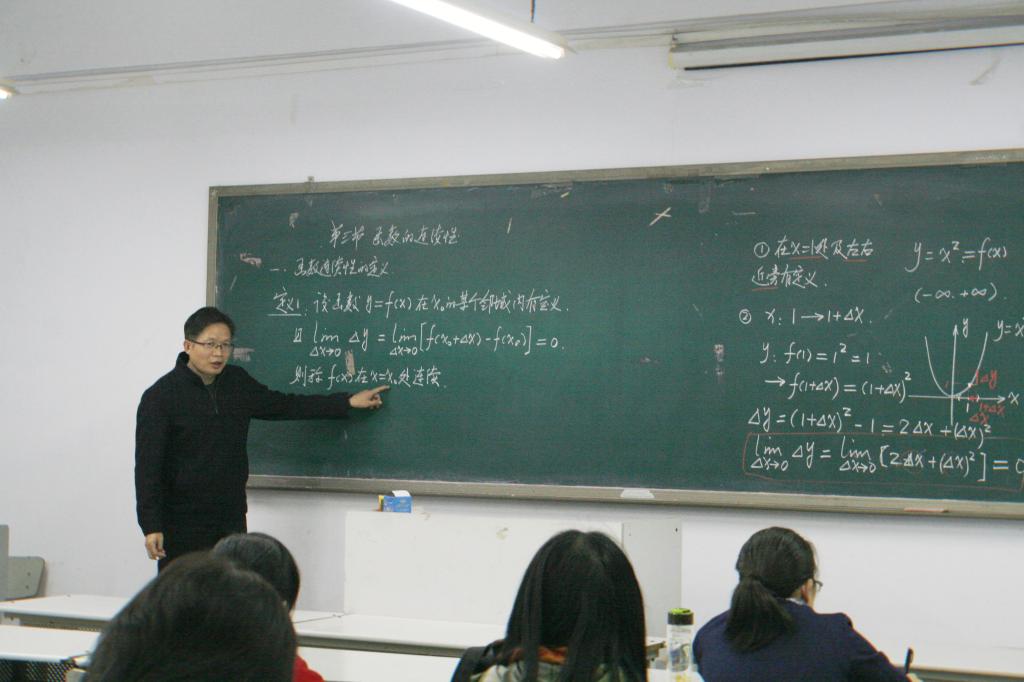 第三节 函数的连续性
一. 函数连续性的定义
定义1. 设函数 y=f(x) 在 x₀ 的某个邻域内有定义.
且 lim Δx→0 Δy = lim Δx→0 [f(x₀+Δx)-f(x₀)]=0.
则称 f(x) 在 x=x₀ 处连续.
① 在x=1处及左右
近旁有定义.
y=x²=f(x)
(-∞.+∞).
② x: 1→1+Δx.
y: f(1)=1²=1
→f(1+Δx)=(1+Δx)²
Δy=(1+Δx)²-1=2Δx+(Δx)²
lim Δx→0 Δy = lim Δx→0 [2Δx+(Δx)²]=0
y
y=x²
Δy
x
1
1+Δx
Δx